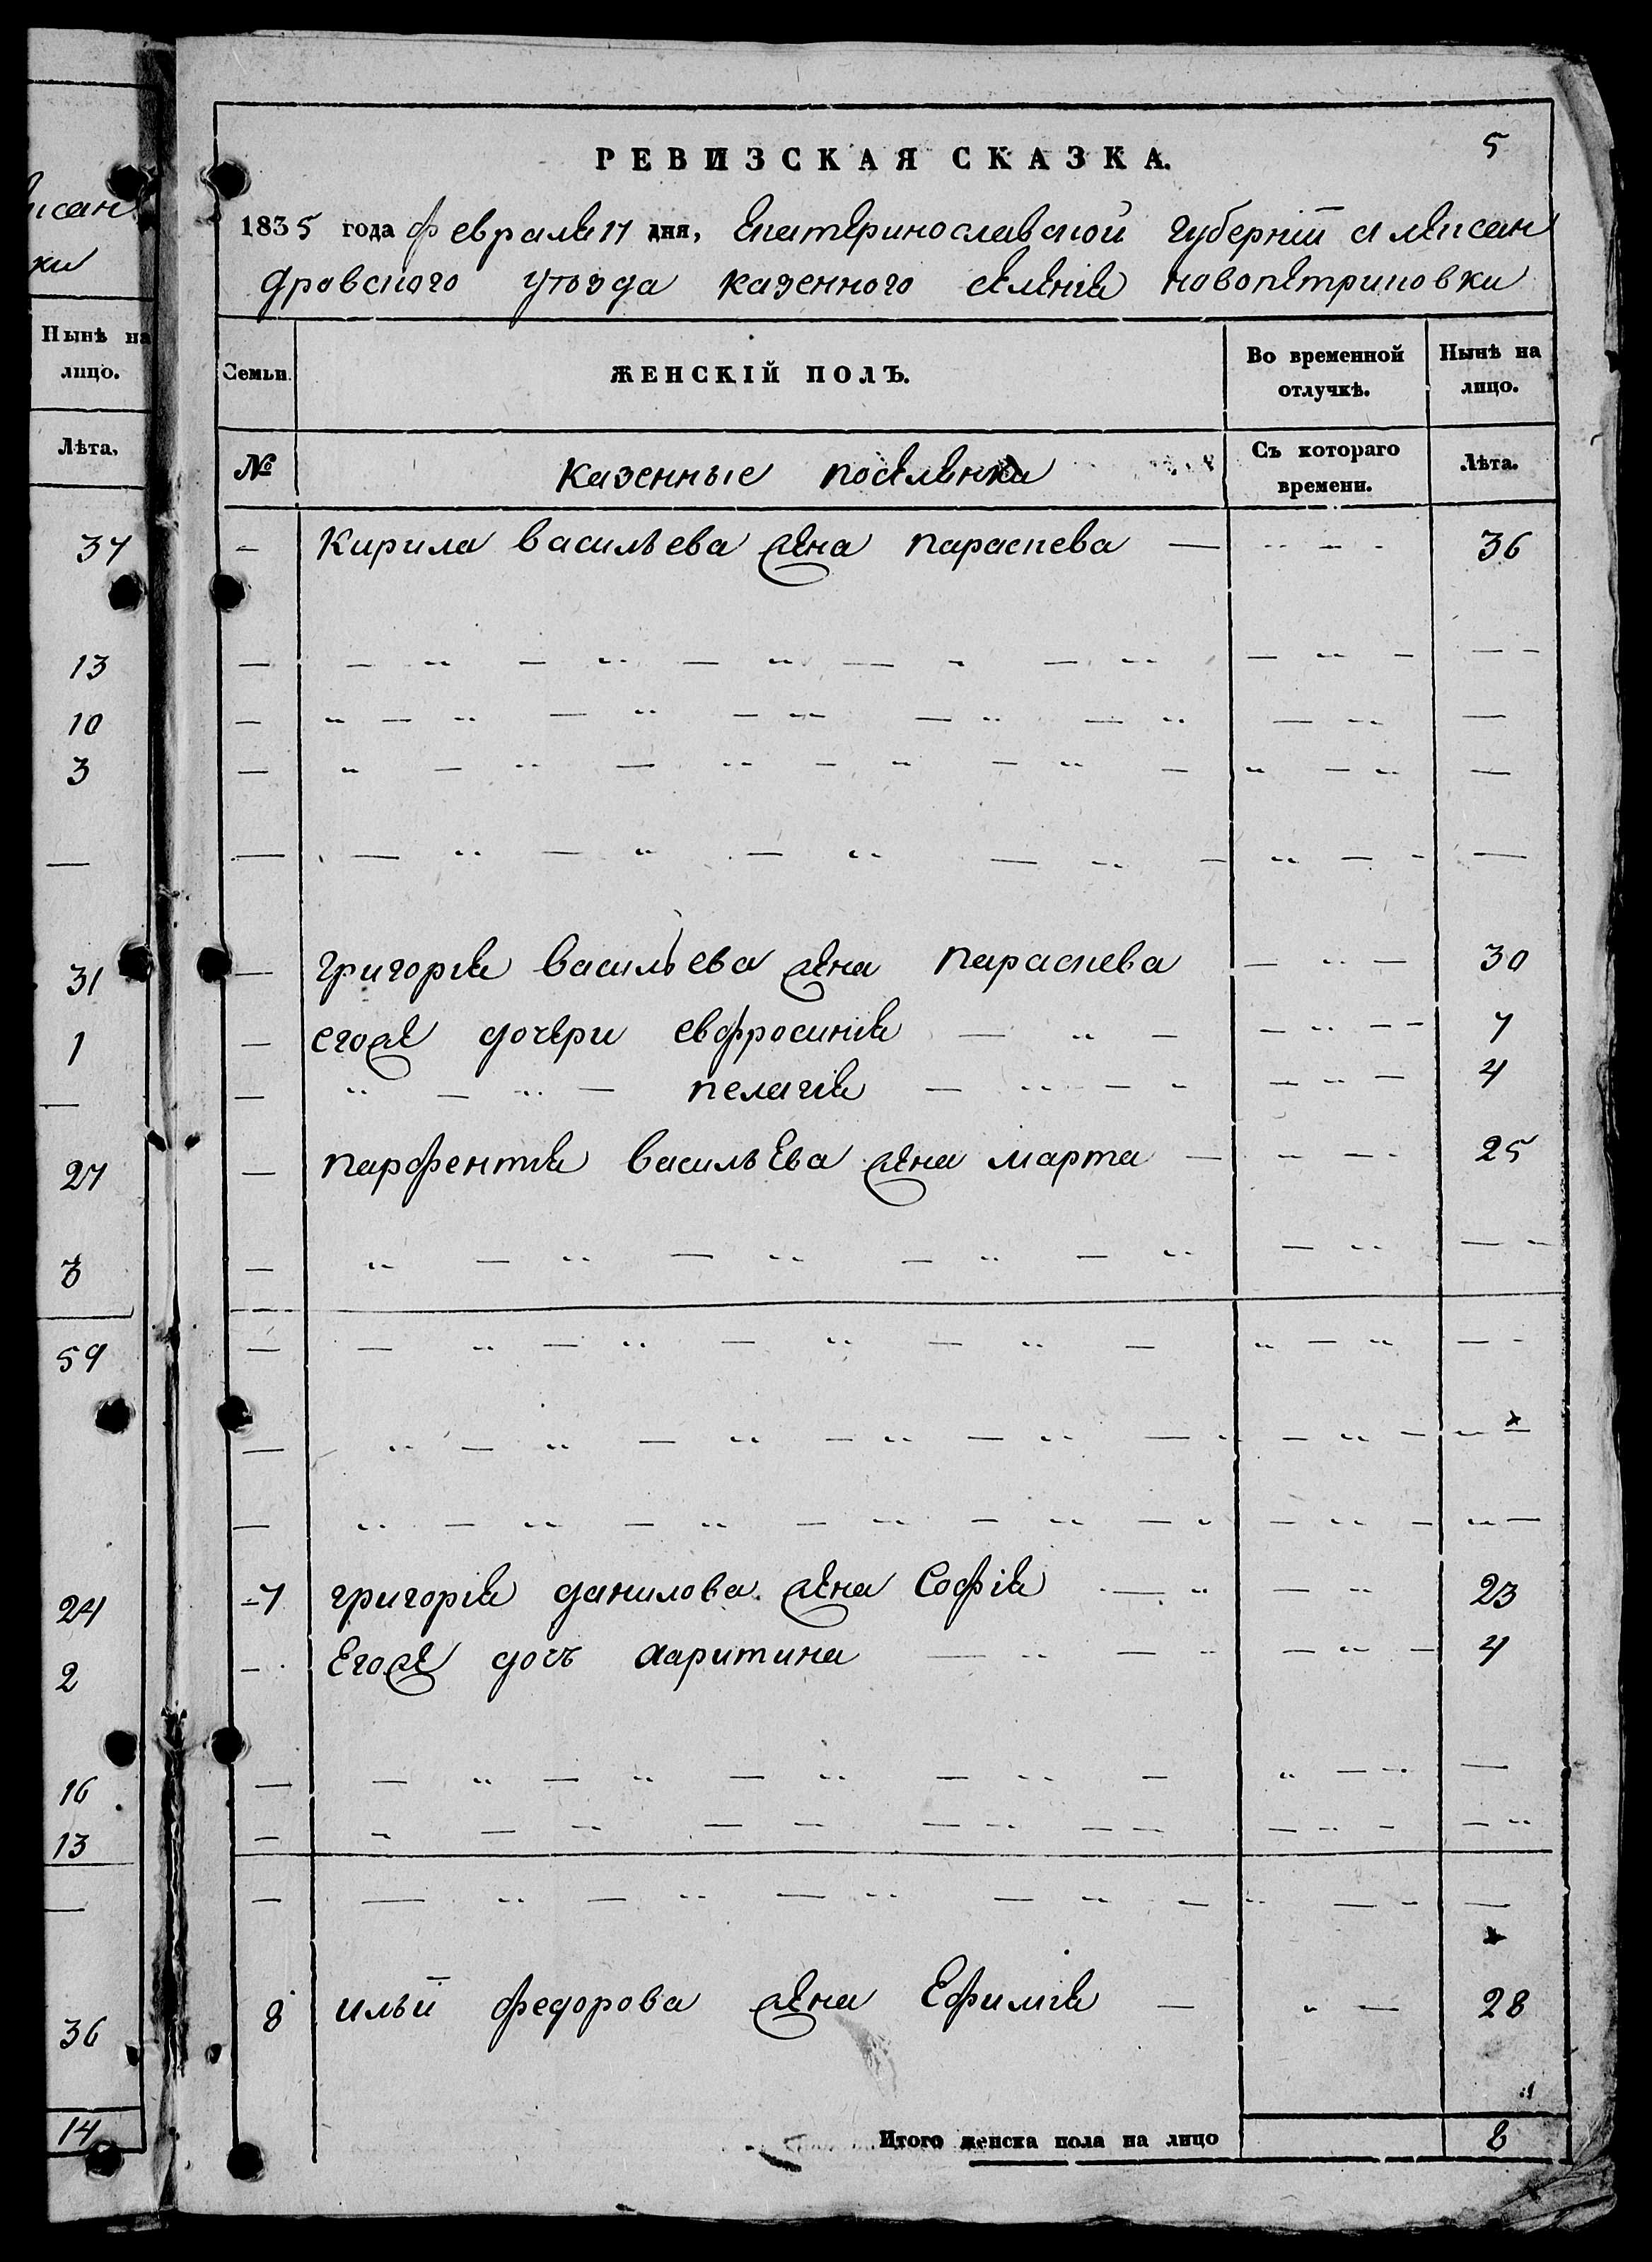 исан
ки
Нынѣ на
лицо.
Лѣта.
37
13
10
3
—
31
1
—
27
3
59
24
2
16
13
—
36
14
5
РЕВИЗСКАЯ СКАЗКА.
1835 года февраля 17 дня, Екатеринославской губерніи Алексан
дровского уѣзда казенного селенія новопетриковки
Семьи.
ЖЕНСКІЙ ПОЛЪ.
Во временной отлучкѣ.
Нынѣ на лицо.
№
казенные поселянки
Съ котораго времени.
Лѣта.
— Кирила васильева жена параскева — 36
— Григорія васильева жена параскева — 30
— егоже дочери евфросинія — 7
— пелагія — 4
— парфентія васильева жена марта — 25
7 григорія данилова жена Софія — 23
— Егоже дочь харитина — 4
8 ильи федорова жена Ефимія — 28
Итого женска пола на лицо 8